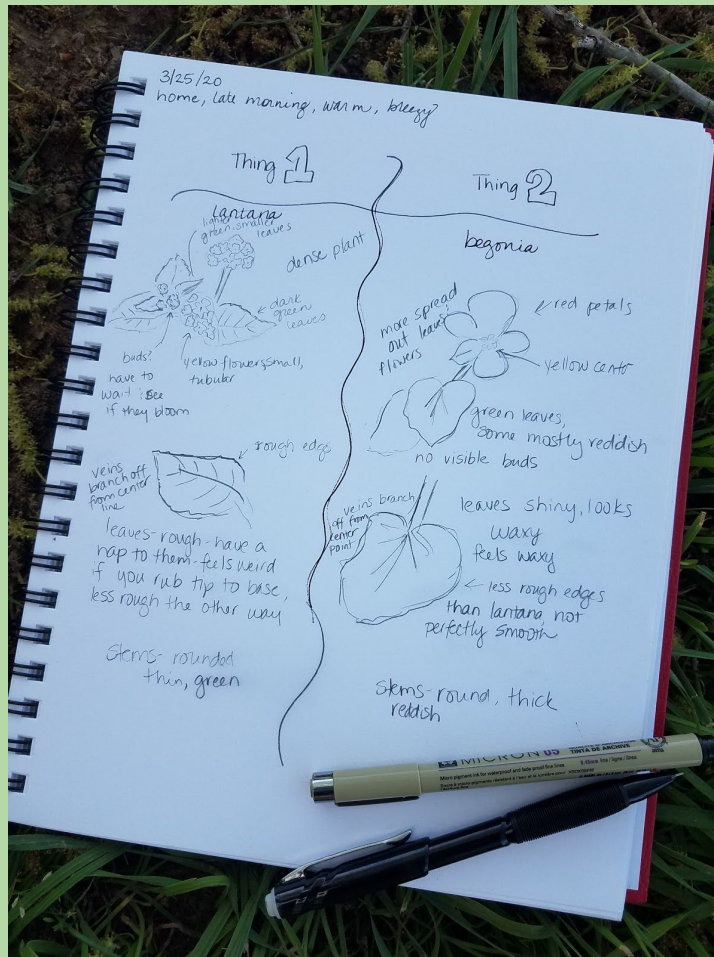 3/25/20
home, late morning, warm, breezy
Thing 1
lantana
lighter
green, smaller
leaves
dense plant
dark
green
leaves
buds?
have to
wait & see
if they bloom
yellow flowers, small,
tubular
rough edge
veins
branch off
from center
line
leaves-rough-have a
nap to them-feels weird
if you rub tip to base,
less rough the other way
stems- rounded
thin, green
Thing 2
begonia
more spread
out leaves &
flowers
red petals
yellow center
green leaves,
some mostly reddish
no visible buds
veins branch
off from
center
point
leaves shiny, looks
waxy
feels waxy
less rough edges
than lantana, not
perfectly smooth
stems-round, thick
reddish
MICRON 05
TINTA DE ARCHIVE
Micro pigment ink for waterproof and fade proof fine lines
0.45mm line / ligne / linea